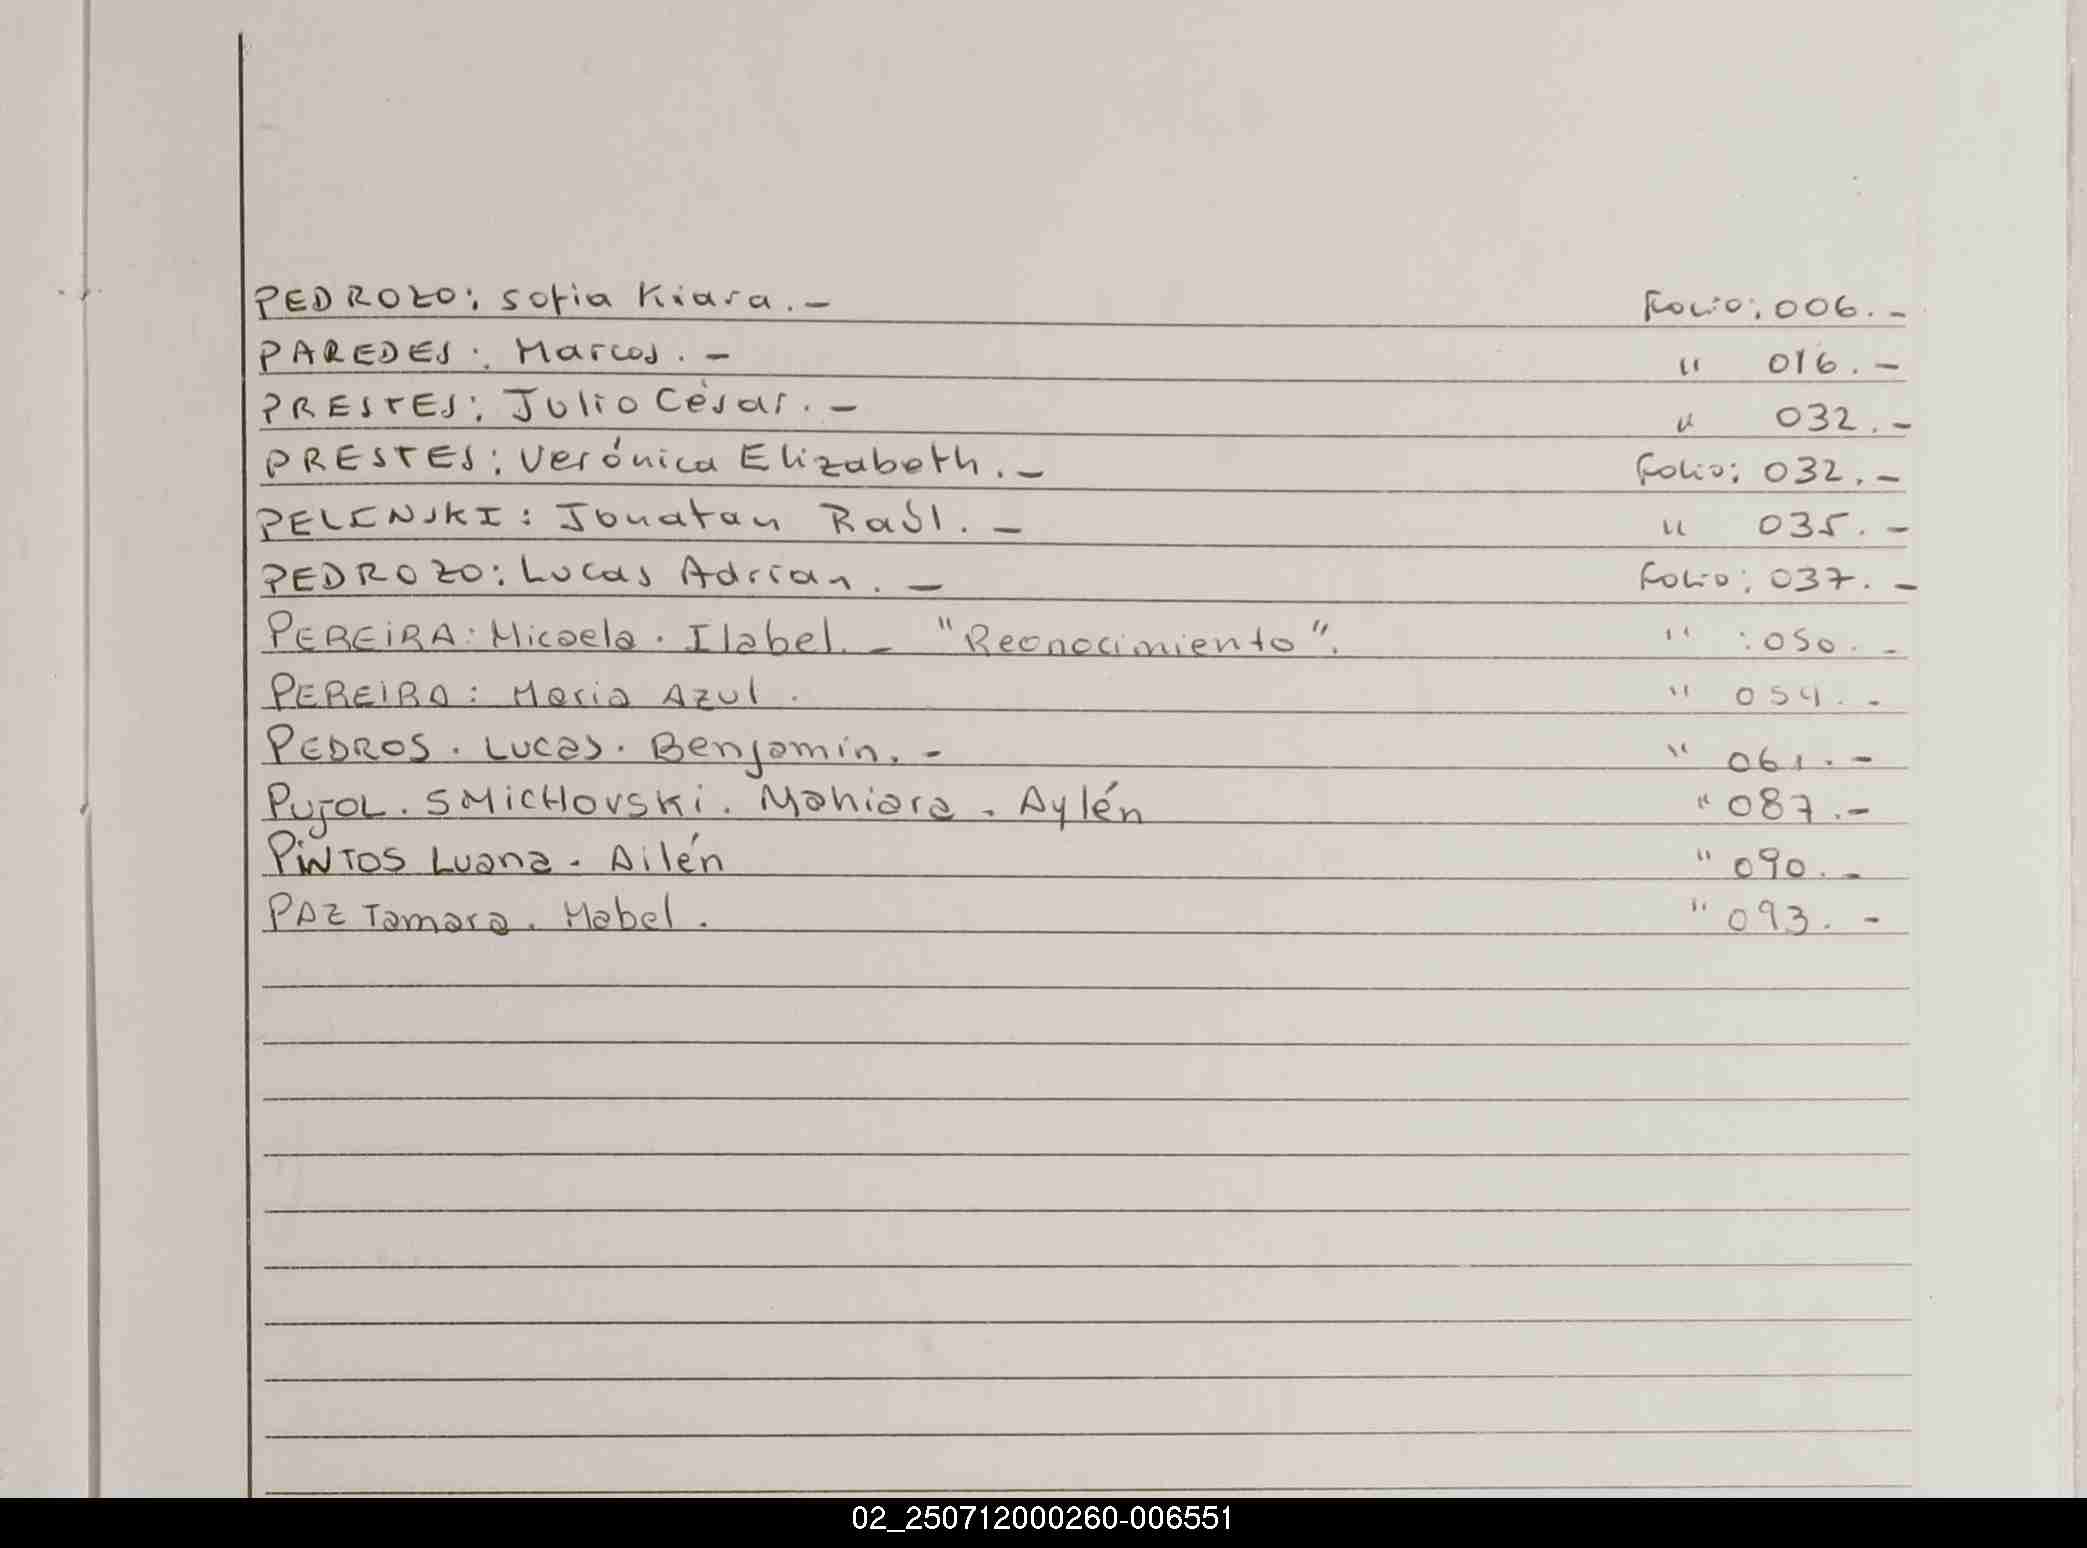 PEDROZO: Sofia Kiara. - Folio: 006. -
PAREDES: Marcos. - " 016. -
PRESTES: Julio César. - " 032. -
PRESTES: Verónica Elizabeth. - Folio: 032. -
PELINSKI: Jonatan Raúl. - " 035. -
PEDROZO: Lucas Adrian. - Folio: 037. -
PEREIRA: Micaela. Isabel. - "Reonocimiento". " : 050. -
PEREIRA: Maria Azul. " 054. -
PEDROS. Lucas. Benjamin. - " 061. -
PUJOL. SMICHOVSKI. Mahiara. Aylén " 087. -
PINTOS Luana. Ailén " 090. -
PAZ Tamara. Mabel. " 093. -
02_250712000260-006551